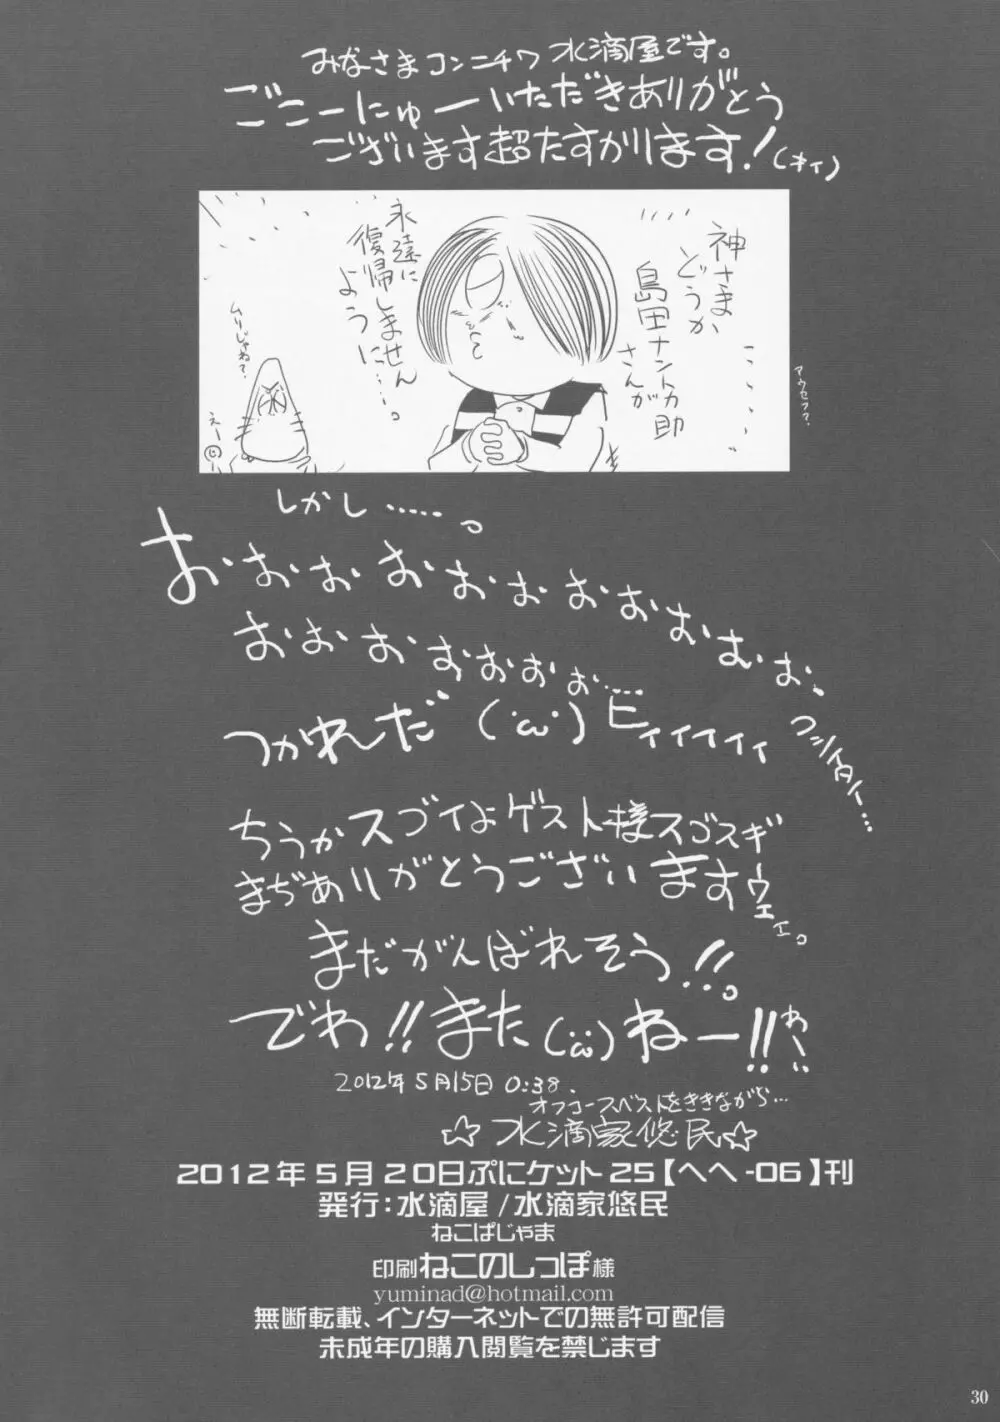 みなさまコンニチワ 水滴屋です。
ごこーにゅーいただきありがとう
ございます超たすかります!(オイ)
神さま
どうか
島田ナントカ助
さんが
永遠に
復帰しません
ように……。
ムリじゃね?
えー
アウセフ?
しかし……。
おおおおおおおおおおおお。
おおおおおおお……
つかれだ(・ω・)ヒィィィィィ
ちうかスゴイよゲスト様スゴスギ
まぢありがとうございますーウェェ。
まだがんばれそう!!。
でわ!!また(・ω・)ねー!!わーい
2012年5月15日 0:38.
オフコースベストをききながら…
☆水滴家悠民☆
2012年5月20日ぷにケット25【へへ-06】刊
発行:水滴屋/水滴家悠民
ねこぱじゃま
印刷ねこのしっぽ様
yuminad@hotmail.com
無断転載、インターネットでの無許可配信
未成年の購入閲覧を禁じます
30